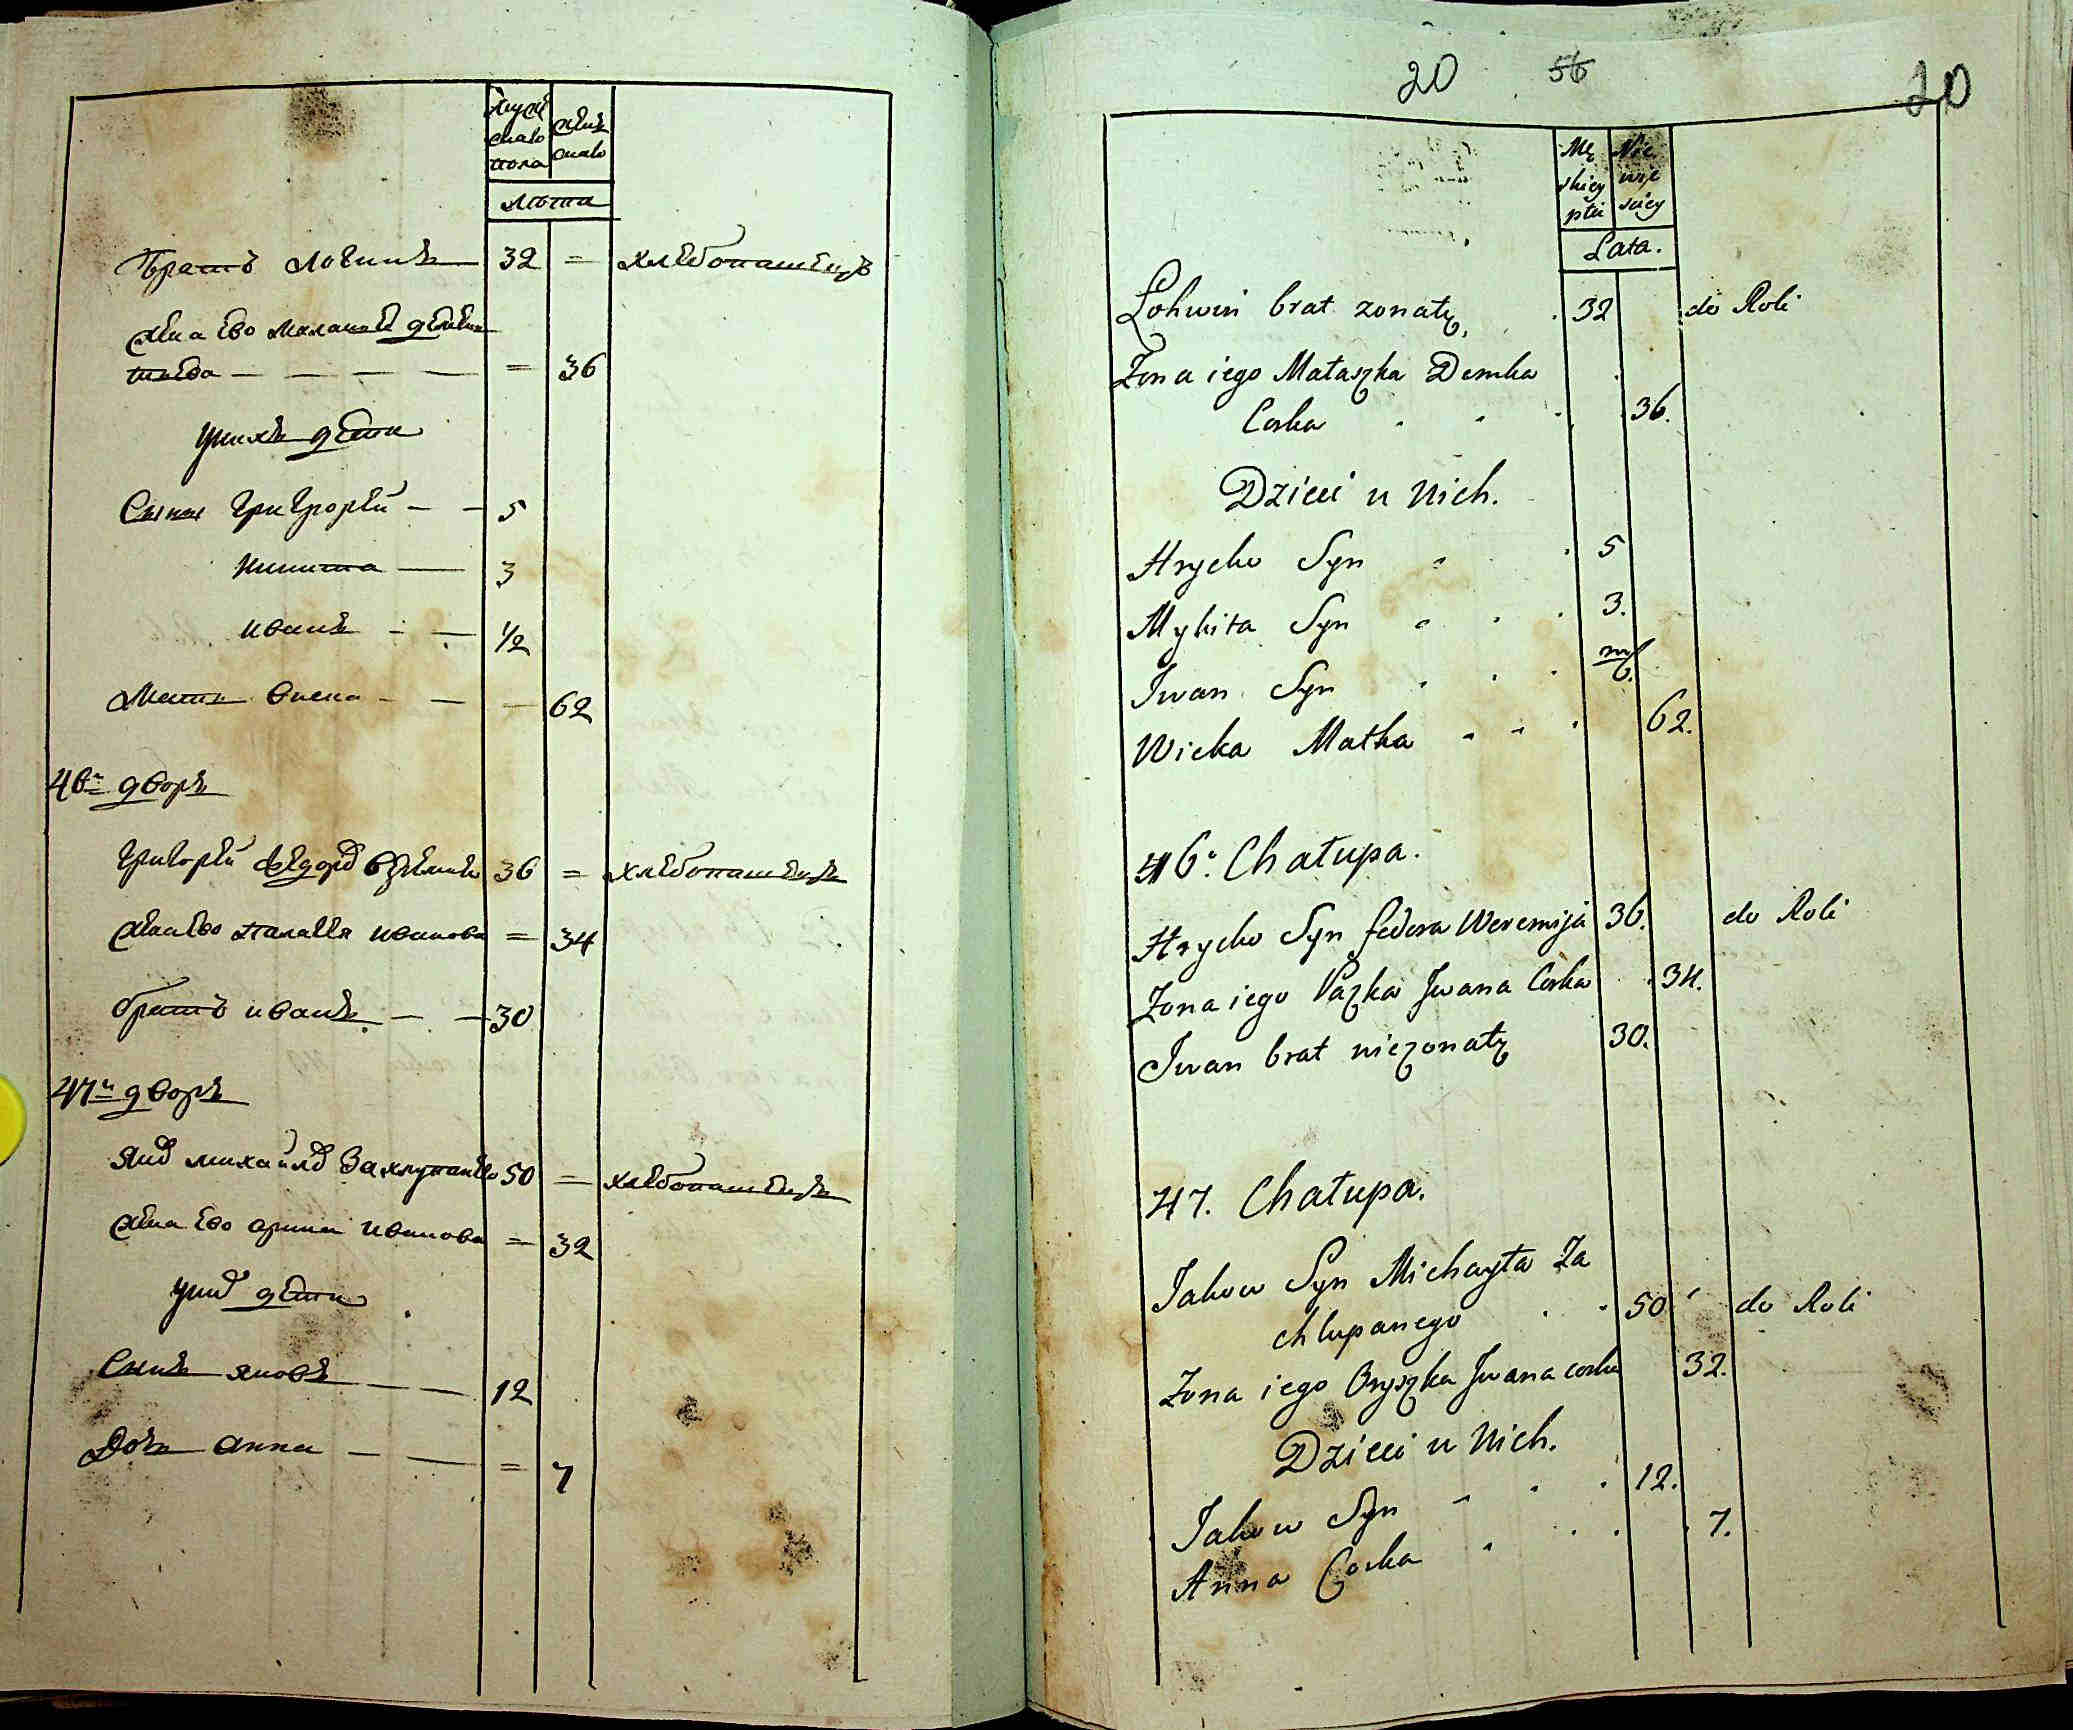 мужеска пола
женска
лѣта
Братъ логинъ 32 = хлѣбопашецъ
жена ево маланья демкина
36
у нихъ дети
Сыны григорей 5
никита 3
иванъ 1/2
Мать 62
46й дворъ
григорей федоров 36 = хлѣбопашецъ
жена ево палагея иванова = 34
братъ иванъ 30
47й дворъ
михайлов захлупаного 50 = хлѣбопашецъ
жена ево арина иванова = 32
у них дети
Сынъ яковъ 12
Дочь анна = 7
20 56 20
Mę skiey płci
Nie wie sciey
Lata.
Łohwin brat zonaty 32 do Roli
Zona iego Małaszka Demka
Corka 36.
Dzieci u Nich.
Hryćko Syn 5
Mykita Syn 3.
Iwan Syn
Wicka Matka 62.
46. Chałupa.
Hryćko Syn fedora Weremija 36. do Roli
Zona iego Pazka Iwana Corka 34.
Iwan brat niezonaty 30.
47. Chałupa.
Jakow Syn Michayła Za
chlupanego 50 do Roli
Zona iego Oryszka Iwana corka 32.
Dzieci u Nich.
Jakow Syn 12.
Anna Corka 7.